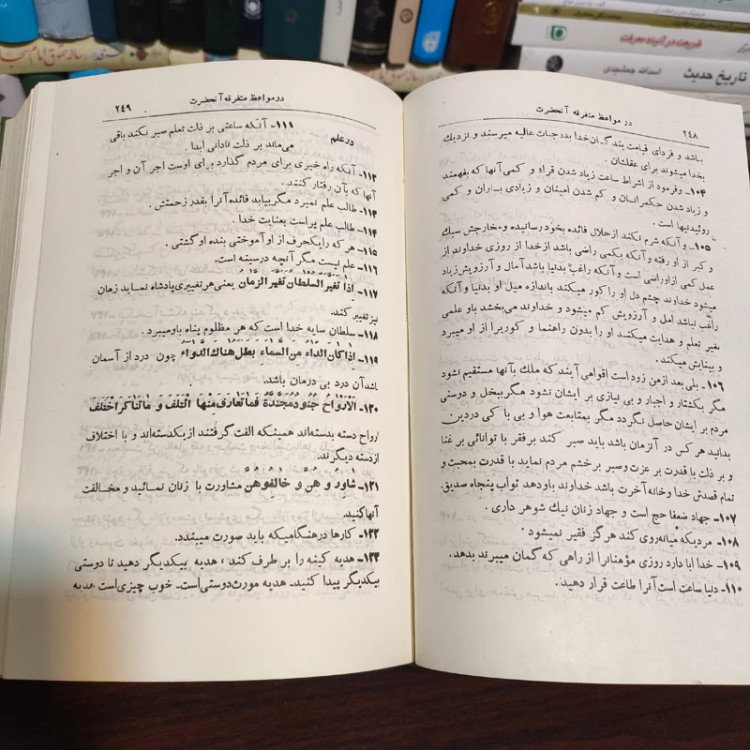 شریعت در آئینه معرفت
تاریخ حدیث
اسدالله جمشیدی
رساله حقوق امام سجاد
۲۴۸
در مواعظ متفرقه آنحضرت
باشد و فردای قیامت بندگان خدا بدرجات عالیه میرسند و نزدیك
بخدا میشوند برای عقلشان.
۱۰۴- وفرمود از اشراط ساعت زیاد شدن قراء و کمی آنها که بفهمند
و زیاد شدن حکمرانان و کم شدن امینان و زیادی باران و کمی
روئیدنیها است.
۱۰۵- وآنکه شرم نکند ازحلال فائده بخود رسانیده ومخارجش سبك
و کبر از او رفته وآنکه بکمی راضی باشد ازخدا از روزی خداوند از
عمل کمی ازاوراضی است و آنکه راغب بدنیا باشد آمال و آرزویش زیاد
میشود خداوند چشم دل او را کور میکند باندازه میل او بدنیا و آنکه
راغب نباشد امل و آرزویش کم میشود و خداوند می‌بخشد باو علمی
بغیر تعلم و هدایت میکند او را بدون راهنما و کوریرا از او میبرد
و بینایش میکند.
۱۰۶- بلی بعد ازمن زود است اقوامی آیند که ملك بآنها مستقیم نشود
مگر بکشتار و اجبار و بی نیازی بر ایشان نشود مگر ببخل و دوستی
مردم بر ایشان حاصل نگردد مگر بمتابعت هوا و بی با کی دردین
بدانید هر کس در آنزمان باشد باید صبر کند بر فقر با توانائی بر غنا
و بر ذلت با قدرت بر عزت وصبر بر خشم مردم نماید با قدرت بمحبت و
تمام قصدش خدا وخانه آخرت باشد خداوند باودهد ثواب پنجاه صدیق.
۱۰۷- جهاد ضعفا حج است و جهاد زنان نیك شوهر داری.
۱۰۸- مردیکه میانه‌روی کند هرگز فقیر نمیشود.
۱۰۹- خدا ابا دارد روزی مؤمنانرا از راهی که گمان میبرند بدهد.
۱۱۰- دنیا ساعت است آنرا طاعت قرار دهید.
در مواعظ متفرقه آنحضرت
۲۴۹
درعلم
۱۱۱- آنکه ساعتی بر ذلت تعلم صبر نکند باقی
می‌ماند بر ذلت نادانی ابدا.
۱۱۲- آنکه راه خبری برای مردم گذارد برای اوست اجر آن و اجر
آنها که بآن رفتار کنند.
۱۱۳- طالب علم نمیرد مگربیابد فائده آنرا بقدر زحمتش.
۱۱۴- طالب علم پرباست بعنایت خدا.
۱۱۵- هر که رایکحرف از او آموختی بنده او گشتی.
۱۱۶- علم نیست مگر آنچه درسینه است.
۱۱۷- اذا تغیر السلطان تغیر الزمان یعنی هر تغییری پادشاه نماید زمان
نیز تغییر کند.
۱۱۸- سلطان سایه خدا است که هر مظلوم پناه باو میبرد.
۱۱۹- اذا کان الداء من السماء بطل هناك الدواء چون درد از آسمان
باشد آن درد بی درمان باشد.
۱۲۰- الارواح جنود مجندة فما تعارف منها ائتلف و ما تناکر اختلف
ارواح دسته بدسته‌اند همینکه الفت گرفتند از یکدسته‌اند و با اختلاف
ازدسته دیگرند.
۱۲۱- شاور و هن و خالفوهن مشاورت با زنان نمائید و مخالفت
آنهاکنید.
۱۲۲- کارها درهنگامیکه باید صورت میبندد.
۱۲۳- هدیه کینه را بر طرف کند، هدیه بیکدیگر دهید تا دوستی
یکدیگر پیدا کنید. هدیه مورث دوستی است. خوب چیزی است هدیه